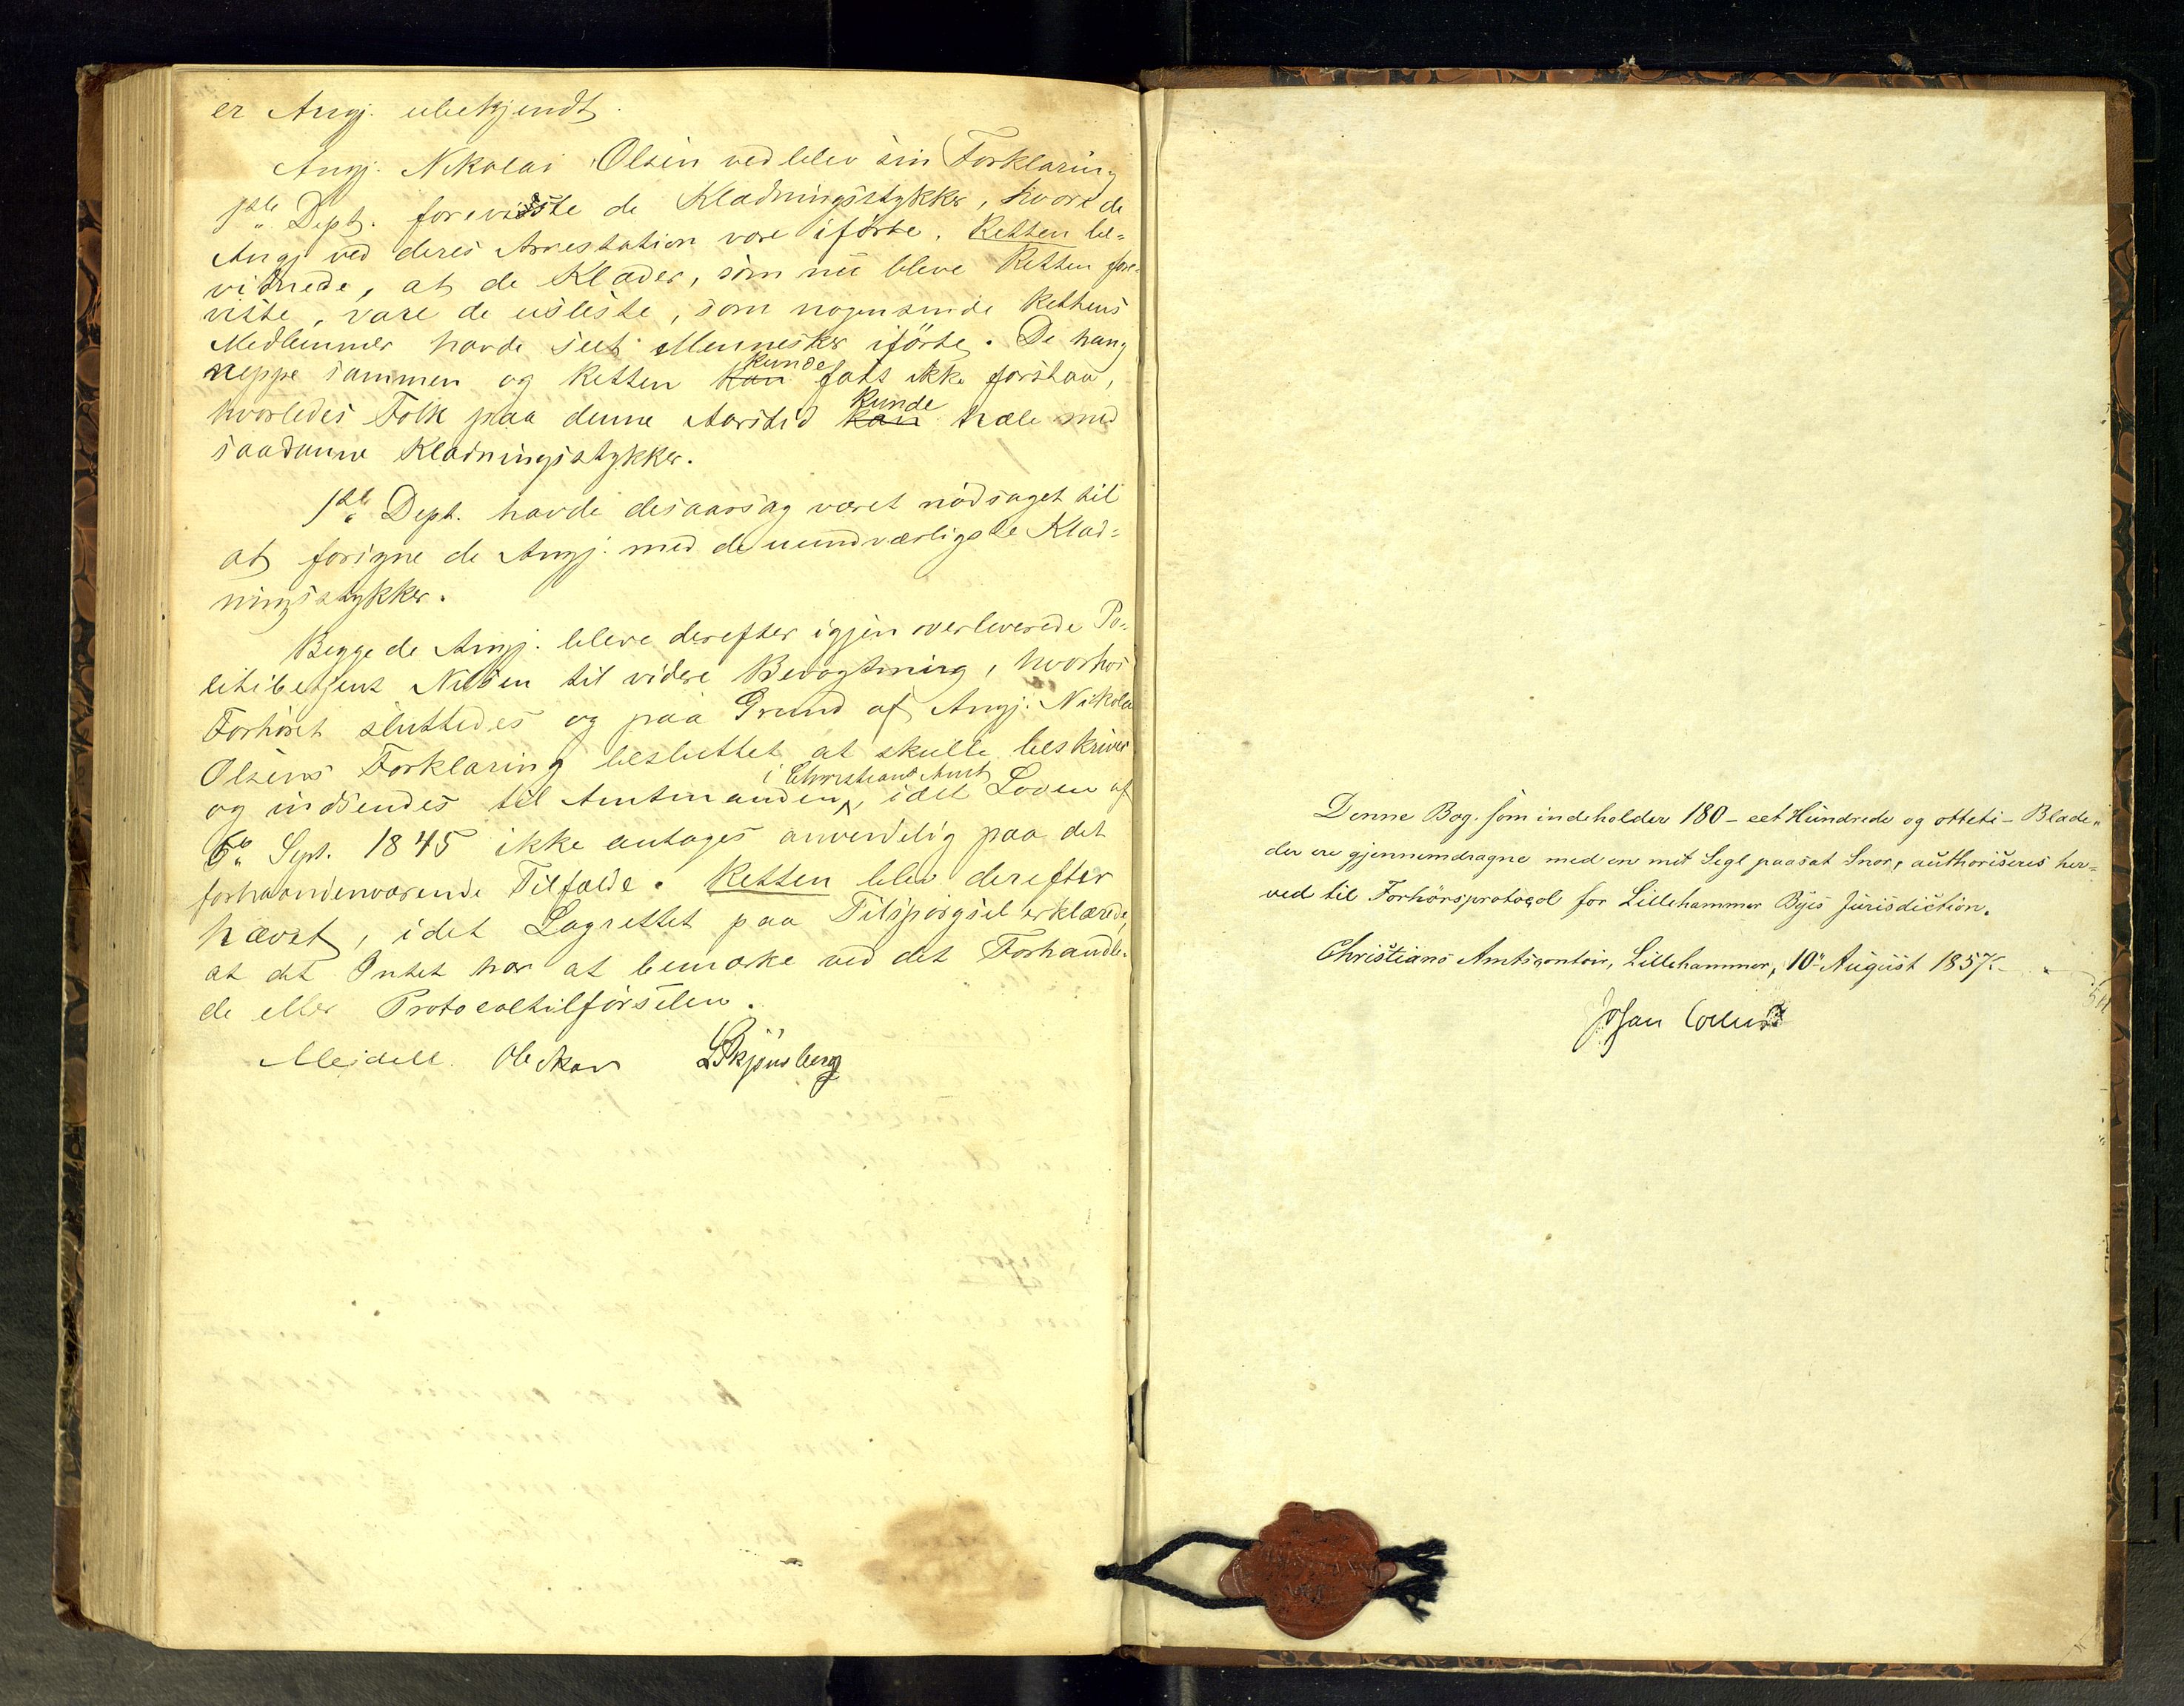 er Angj. ubekjendt.
Angj. Nikolai Olsen vedblev sin Forklaring
1ste Dept. foreviste de Klædningsstykker, hvori de
Angj ved deres Arrestation vare iførte. Retten be-
vidnede, at de Klæder, som nu bleve Retten fore-
viste, vare de usleste, som nogensinde Rettens
Medlemmer havde seet Mennesker iførte. De hang
neppe sammen og Retten kan kunde fast ikke forstaa,
hvorledes Folk paa denne Aarstid kan kunde taale med
saadanne Klædningsstykker.
1ste Dept. havde desaarsag været nødsaget til
at forsyne de Angj. med de uundværligste Klæd-
ningsstykker.
Begge de Angj. bleve derefter igjen overleverede Po-
litibetjent Nilsen til videre Bevogtning, hvorhos
Forhøret sluttedes og paa Grund af Angj. Nickolai
Olsens Forklaring besluttet at skulle beskrives
og indsendes til Amtmanden i Christians Amt, idet Loven af
6te Sept. 1845 ikke antages anvendelig paa det
forhaandenværende Tilfælde. Retten blev derefter
hævet, idet Lagrettet paa Tilspørgsel erklærede,
at det Intet har at bemærke ved det Forhandle-
de eller Protocoltilførselen.
Meidell. Ole Skar L Skjønsberg
Denne Bog. som indeholder 180 - eet Hundrede og otteti - Blade,
der ere gjennemdragne med en mit Segl paasat Snor, authoriseres her-
ved til Forhörsprotocol for Lillehammer Byes Jurisdiction.
Christians Amtscontoir, Lillehammer, 10de August 1857.
Johan Collett